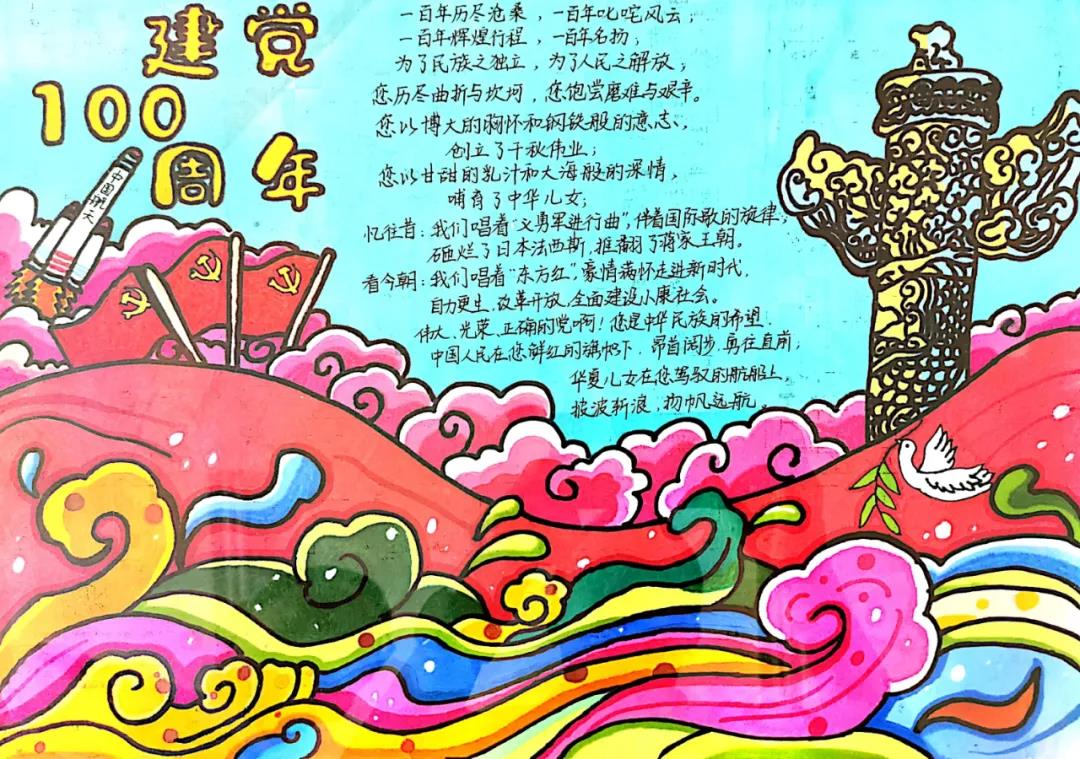 建党
100
周年
中国航天
一百年历尽沧桑，一百年叱咤风云；
一百年辉煌行程，一百年名扬；
为了民族之独立，为了人民之解放；
您历尽曲折与坎坷，您饱尝磨难与艰辛。
您以博大的胸怀和钢铁般的意志，
创立了千秋伟业；
您以甘甜的乳汁和大海般的深情，
哺育了中华儿女；
忆往昔：我们唱着“义勇军进行曲”，伴着国际歌的旋律；
砸烂了日本法西斯，推翻了蒋家王朝。
看今朝：我们唱着“东方红”，豪情满怀走进新时代，
自力更生、改革开放，全面建设小康社会。
伟大、光荣、正确的党啊！您是中华民族的希望．
中国人民在您鲜红的旗帜下，昂首阔步．勇往直前；
华夏儿女在您驾驭的航船上，
披波斩浪，扬帆远航。